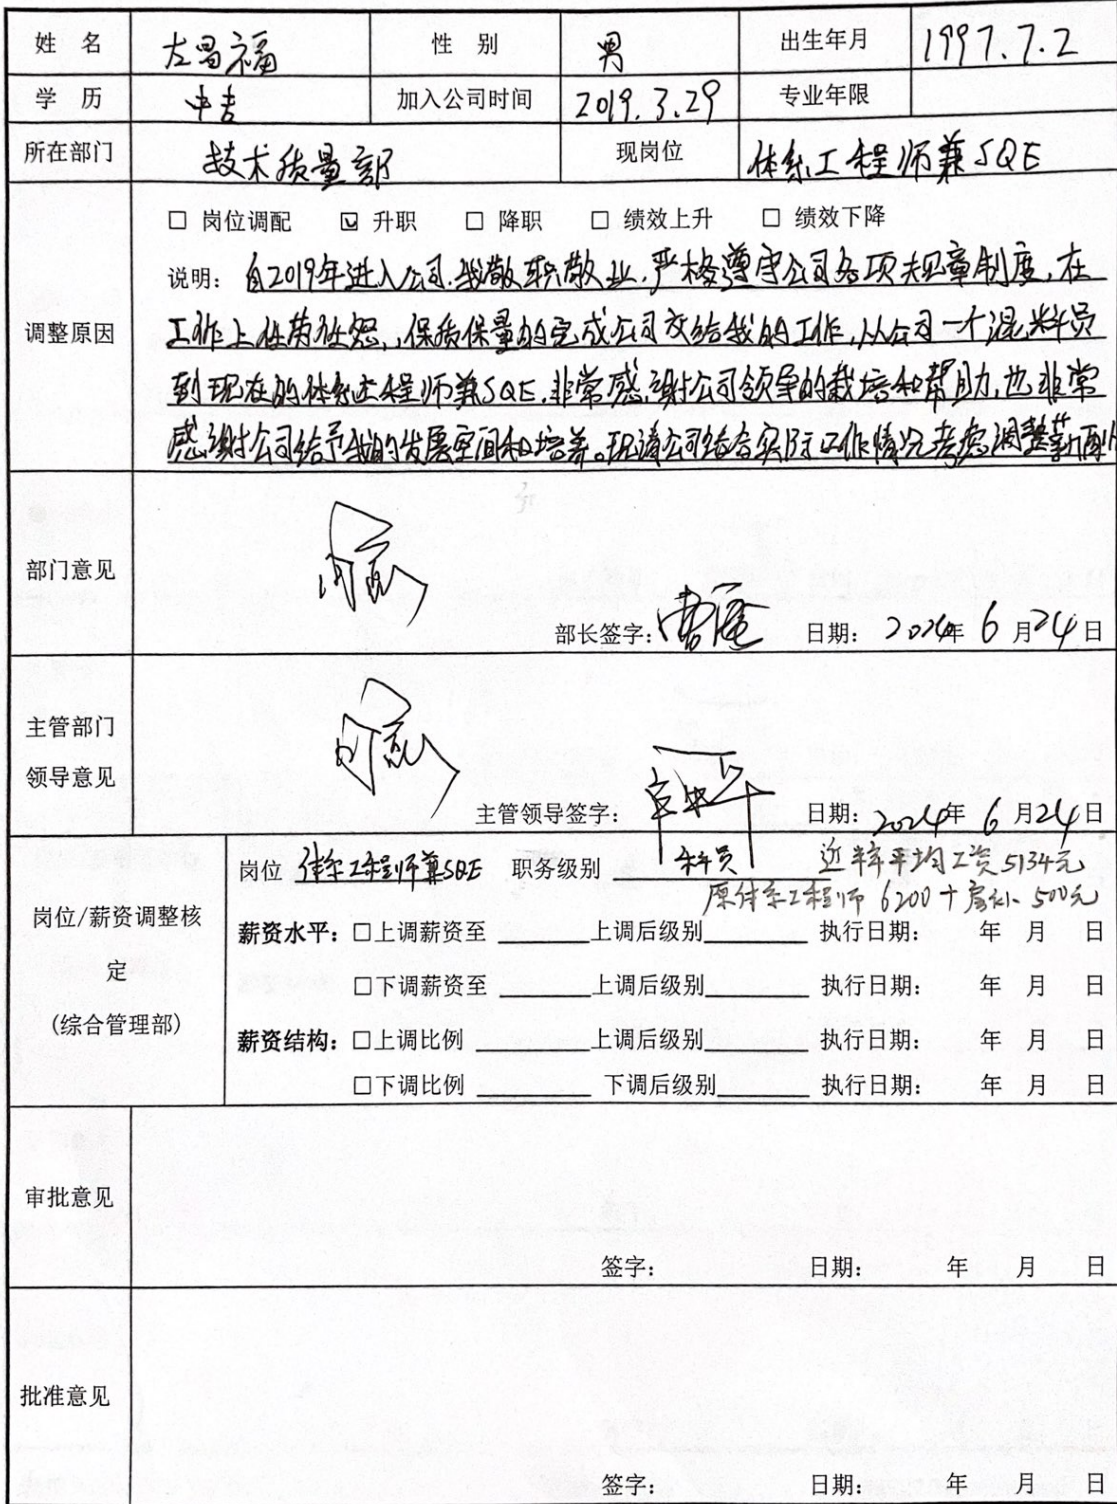 姓 名 左昌福 性 别 男 出生年月 1997.7.2
学 历 中专 加入公司时间 2019.3.29 专业年限
所在部门 技术质量部 现岗位 体系工程师兼SQE
□ 岗位调配 ☑ 升职 □ 降职 □ 绩效上升 □ 绩效下降
说明：自2019年进入公司.我敬职敬业,严格遵守公司各项规章制度,在
调整原因 工作上任劳任怨,保质保量的完成公司交给我的工作,从公司一个混料员
到现在的体系工程师兼SQE.非常感谢公司领导的栽培和帮助,也非常
感谢公司给予我的发展空间和培养。现请公司结合实际工作情况考虑调整薪酬
部门意见 同意
部长签字： 日期： 2024年 6 月24日
主管部门
领导意见 同意
主管领导签字： 日期： 2024年 6 月24日
岗位 体系工程师兼SQE 职务级别 科员 近半年平均工资5134元
原体系工程师 6200+房补500元
岗位/薪资调整核
定
(综合管理部)
薪资水平：□上调薪资至 上调后级别 执行日期： 年 月 日
□下调薪资至 上调后级别 执行日期： 年 月 日
薪资结构：□上调比例 上调后级别 执行日期： 年 月 日
□下调比例 下调后级别 执行日期： 年 月 日
审批意见
签字： 日期： 年 月 日
批准意见
签字： 日期： 年 月 日